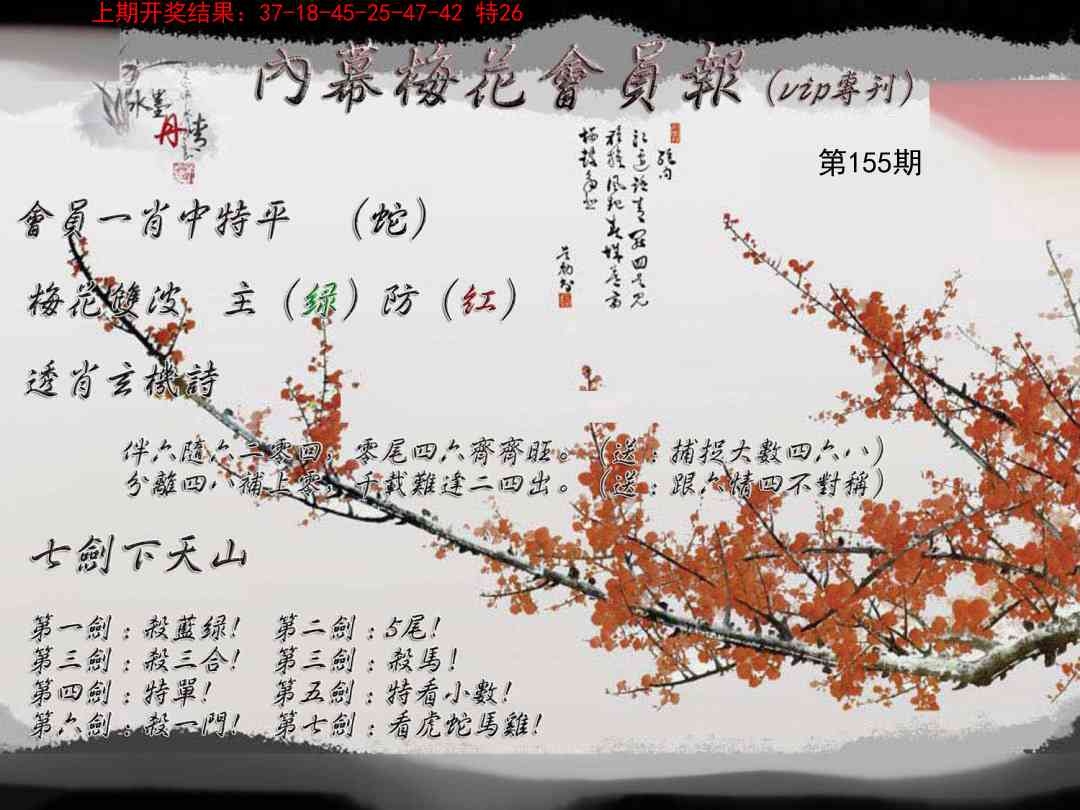 上期开奖结果：37-18-45-25-47-42 特26
內幕梅花會員報（vip專刊）
水墨
丹青
第155期
會員一肖中特平 （蛇）
梅花雙波 主（绿）防（红）
透肖玄機詩
伴六隨六二零四，零尾四六齊齊旺。（送：捕捉大數四六八）
分離四八補上零，千載難逢二四出。（送：跟六情四不對稱）
七劍下天山
第一劍：殺藍绿！ 第二劍：5尾！
第三劍：殺三合！ 第三劍：殺馬！
第四劍：特單！ 第五劍：特看小數！
第六劍：殺一門！ 第七劍：看虎蛇馬雞！